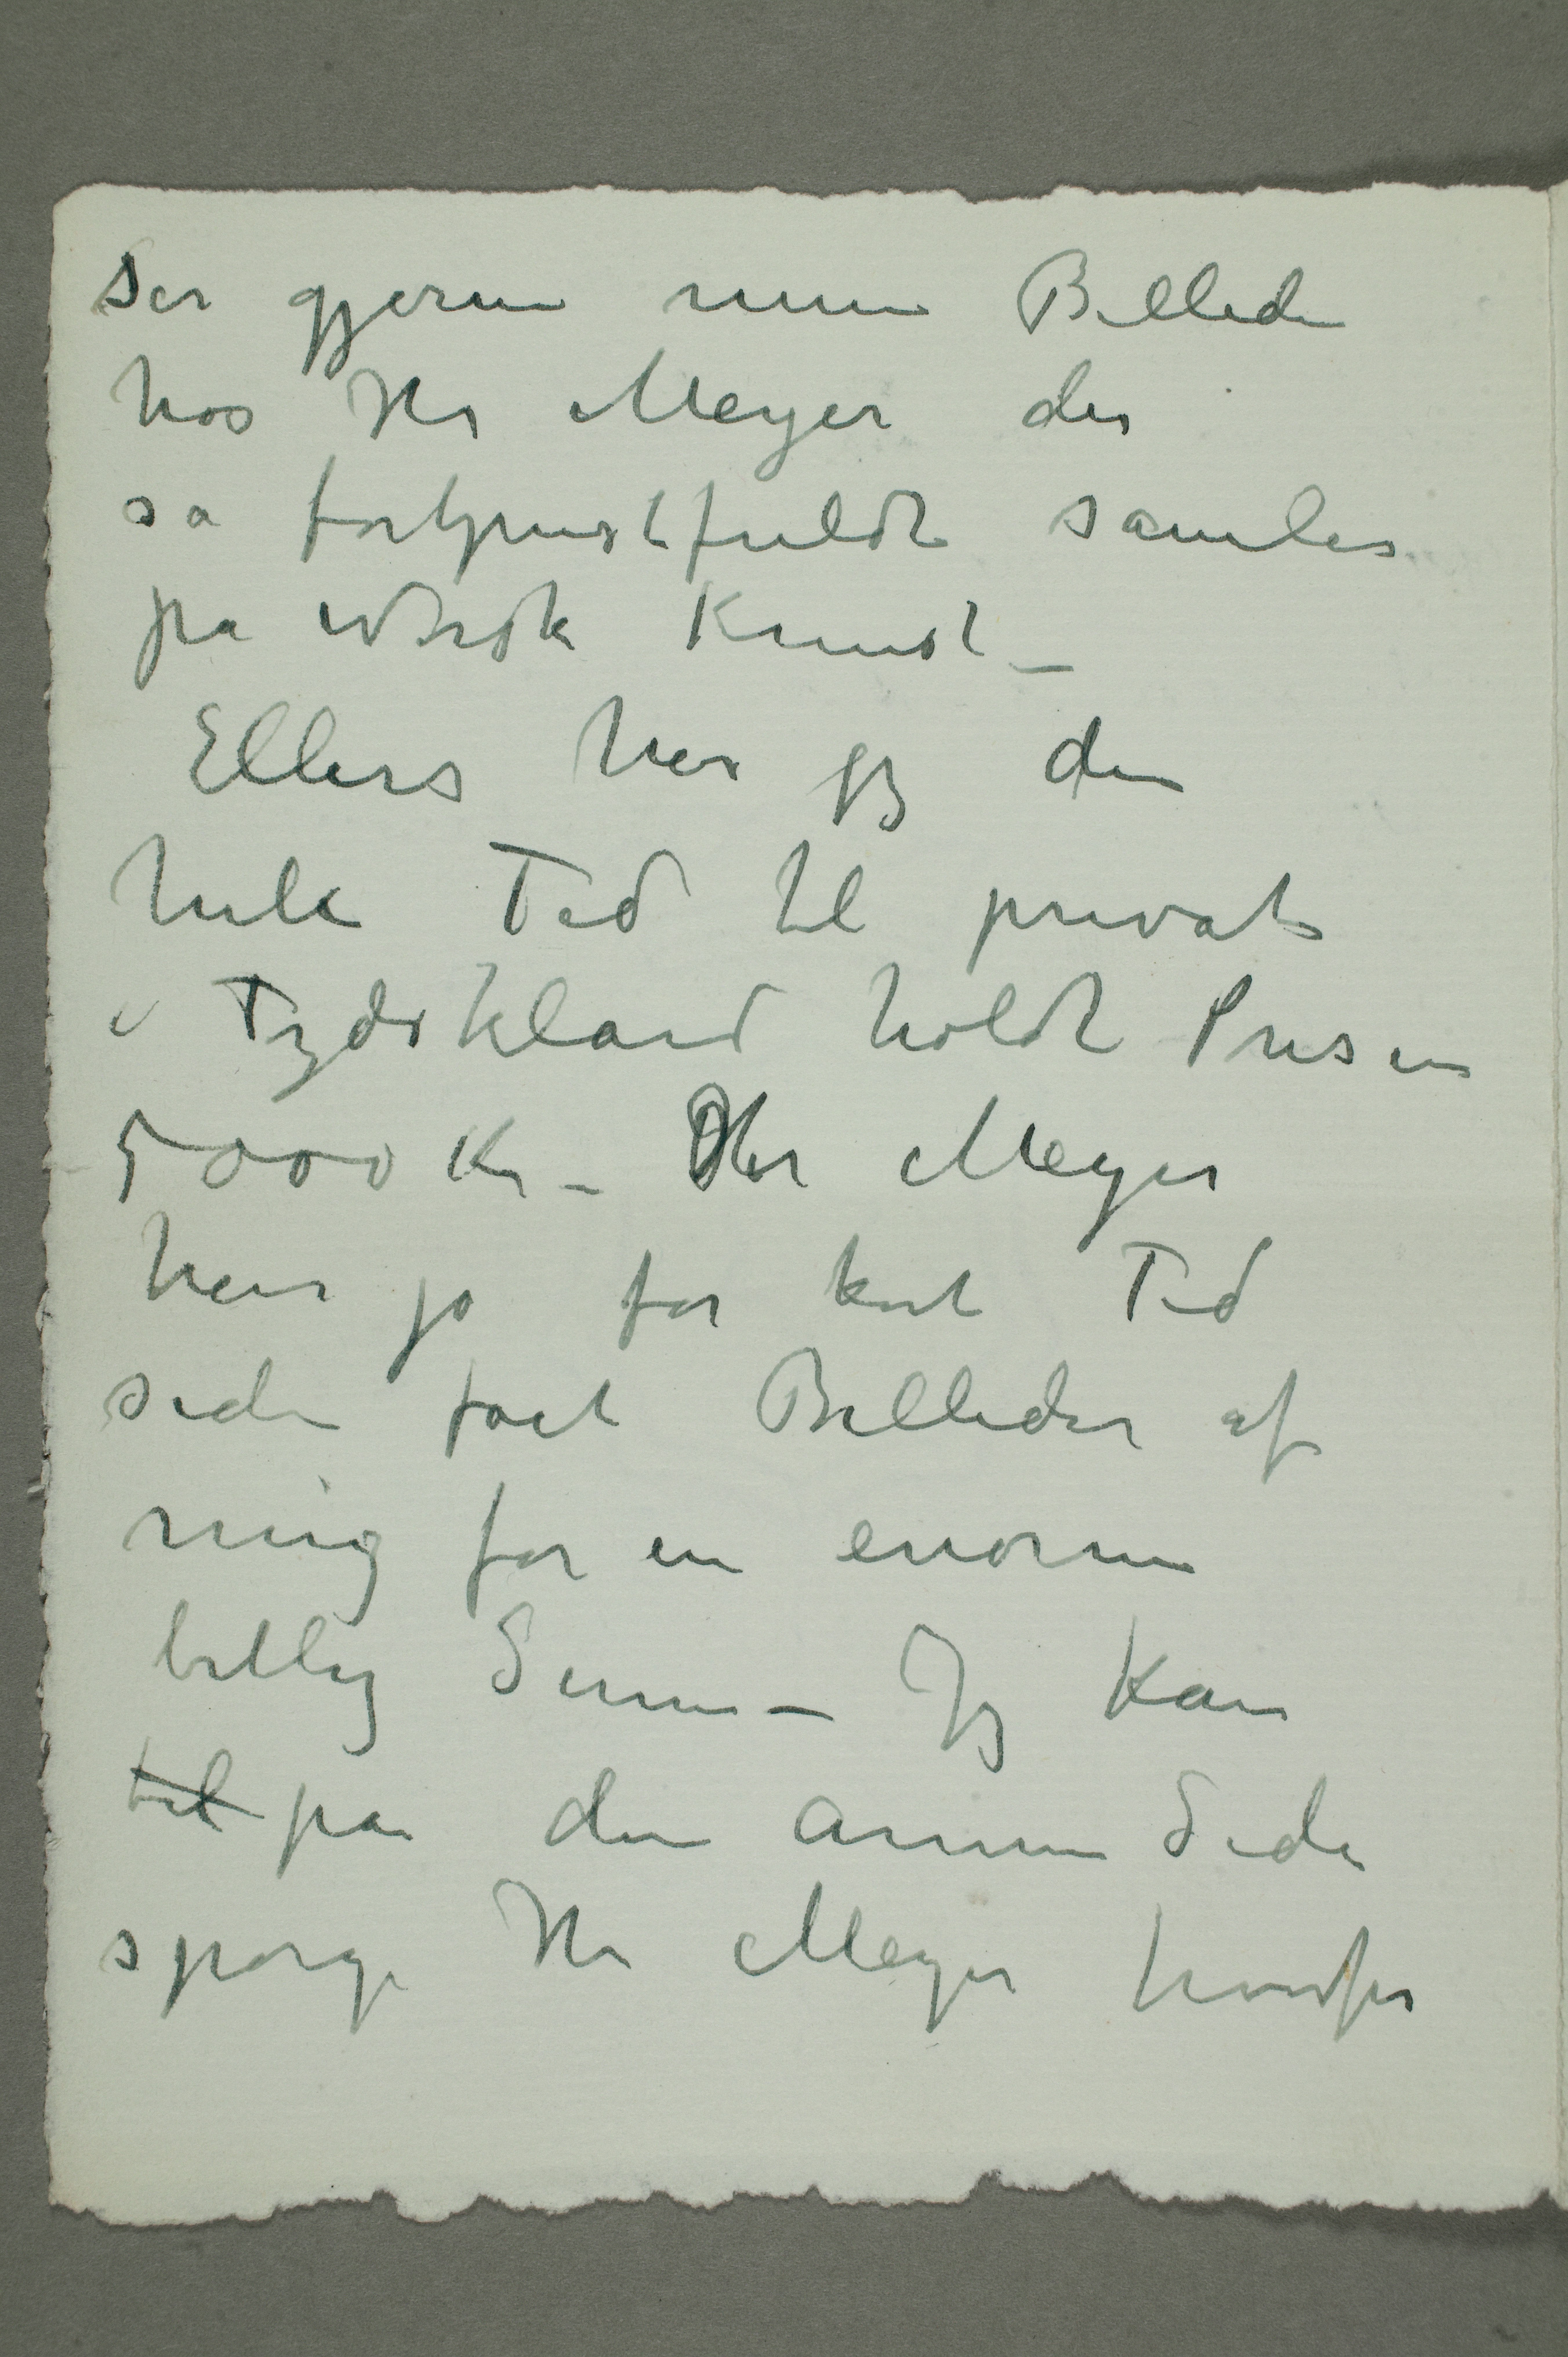 Ser gjerne mine Billeder
hos Hr Meyer der
så fortjenstfuldt samler
på norsk Kunst –
Ellers har jeg den
hele Tid til private
i Tydskland holdt Prisen
5000 Kr – Hr Meyer
har jo for kort Tid
siden fåt Billeder af
mig for en enorm
billig Sum – Jeg kan
til på den anden Side
spørge Hr Meyer hvorfor